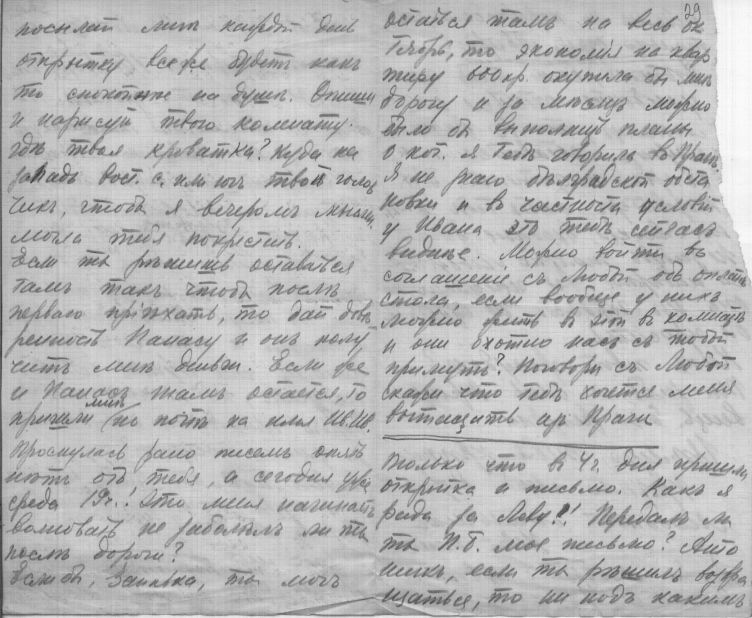 посылай мнѣ каждый день
открытку все же будетъ какъ
то спокойнѣе на душѣ. Опиши
и нарисуй твою комнату.
гдѣ твоя кроватка? Куда на
западъ вост. с. или югъ твой голов
чикъ, чтобъ я вечеромъ мыслен.
могла тебя покрестить.
Если ты рѣшишь оставаться
тамъ такъ чтобы послѣ
перваго пріѣхать, то дай довѣ
ренность Панасу и онъ полу
читъ мнѣ деньги. Если же
и Панасъ тамъ остается, то
пришли мнѣ по почтѣ на имя Ив. Ив.
Проснулась рано писемъ опять
нѣтъ отъ тебя, а сегодня уже
среда 19г.! Это меня начинаетъ
волновать не заболѣлъ ли ты
послѣ дороги?
Если бы, Заинька, ты могъ
29
остаться тамъ на весь ок
тябрь, то экономія на квар
тиру 600 кр. окупила бы мнѣ
дорогу и за мѣсяцъ можно
было бъ выполнить планы
о кот. я тебѣ говорила въ Прагѣ.
Я не знаю бѣлградской обста
новки и въ частности условій
у Ивана это тебѣ сейчасъ
виднѣе. Можно войти въ
соглашеніе съ Любой объ оплатѣ
стола, если вообще у нихъ
можно жить въ этой въ комнатѣ
и они охотно насъ съ тобой
примутъ? Поговори съ Любой
скажи что тебѣ хочется меня
вытащить изъ Праги
Только что въ 4 ч. дня пришла
открытка и письмо. Какъ я
рада за Леву?! Передалъ ли
ты П.Б. мое письмо? Анто
шикъ, если ты рѣшилъ возвра
щаться, то ни подъ какимъ